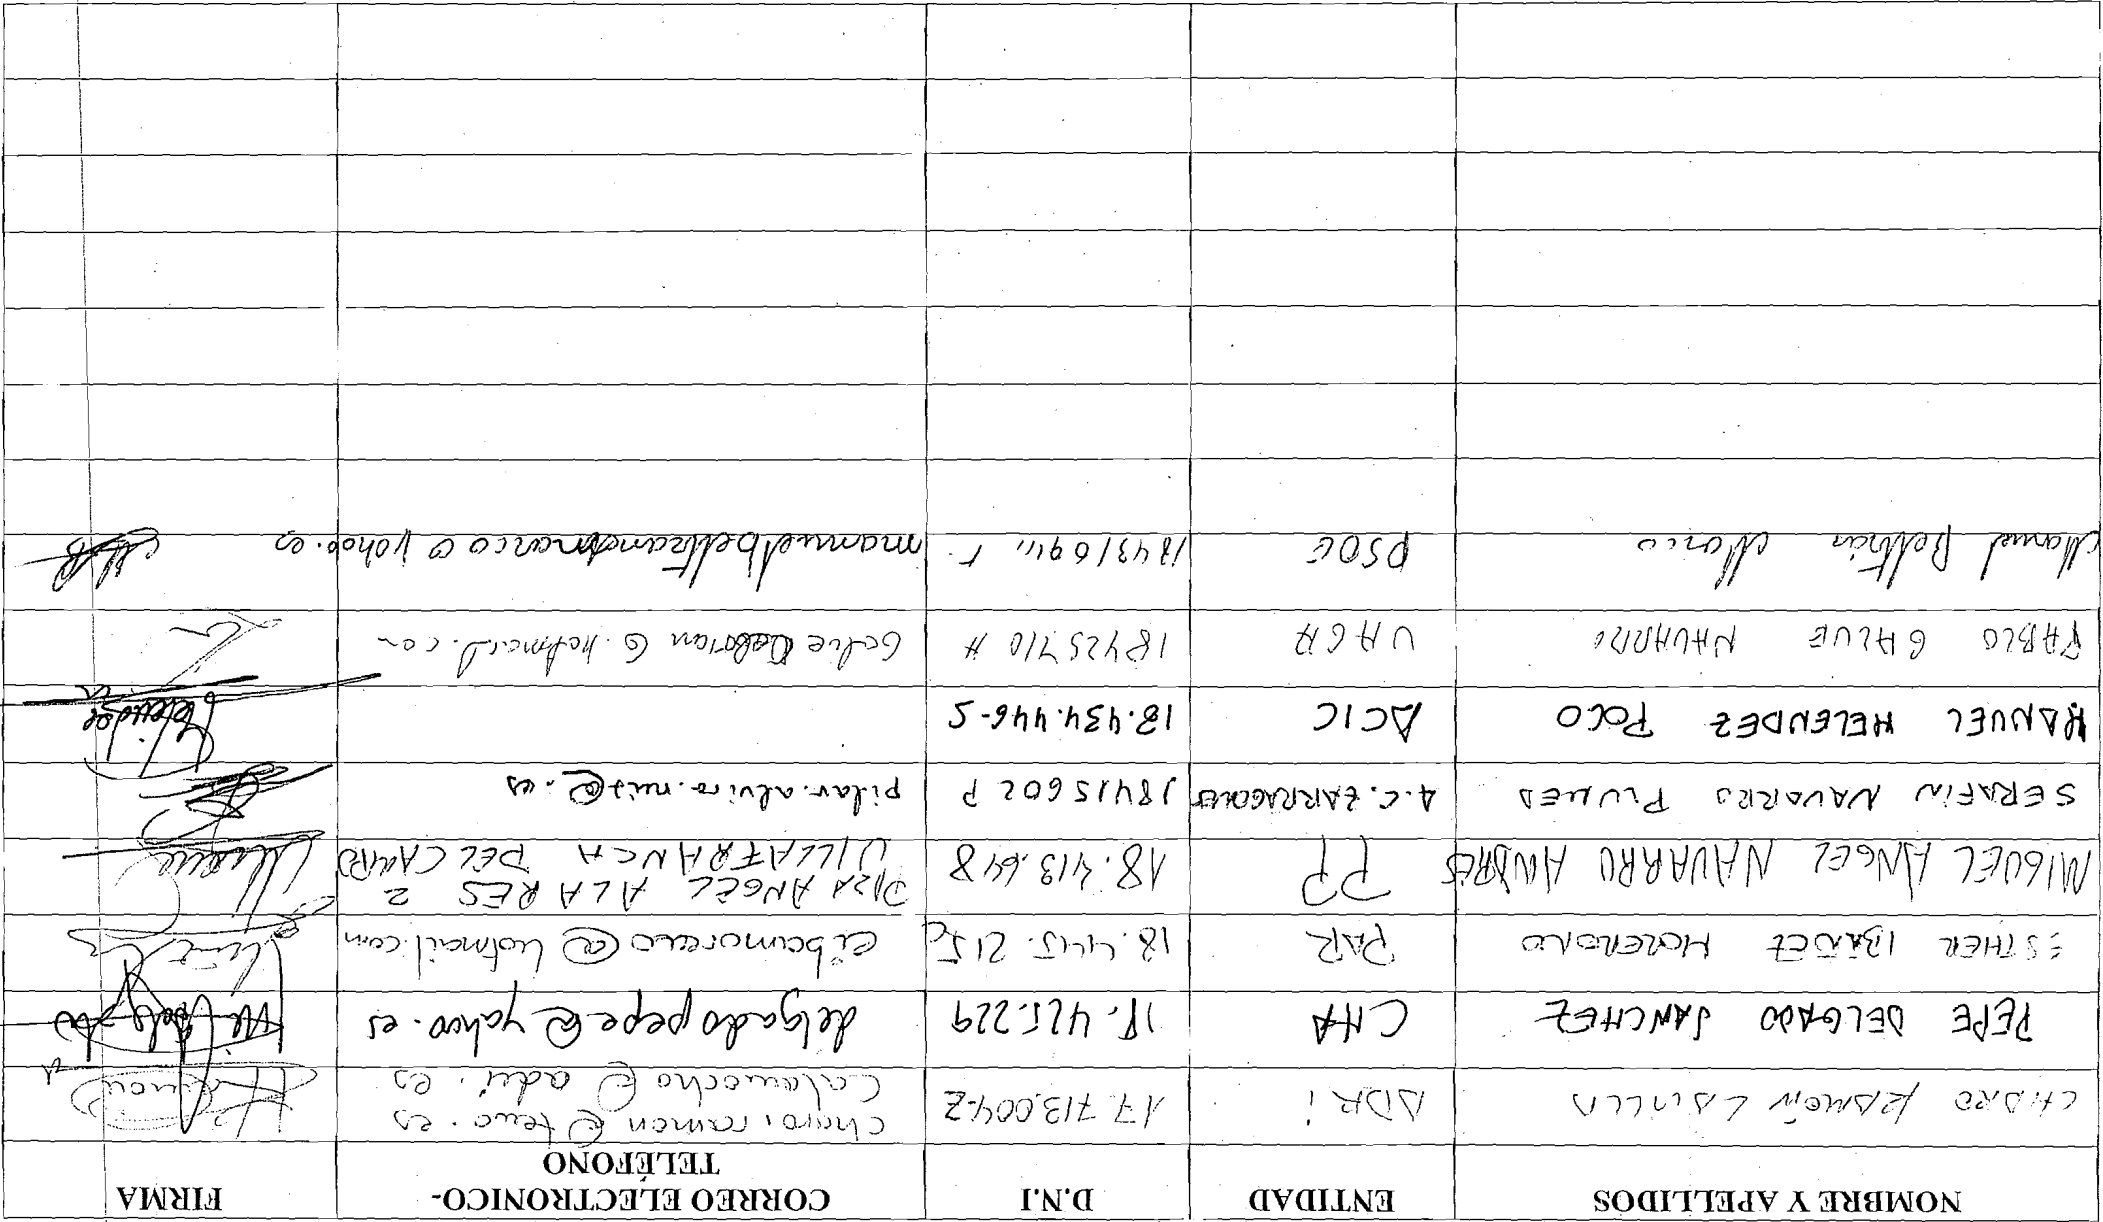 NOMBRE Y APELLIDOS ENTIDAD D.N.I CORREO ELECTRONICO- TELÉFONO FIRMA
CHARO RAMÓN ADRI 17.713.004-Z
calamocha@adri.es
PEPE DELGADO SANCHEZ CHA 18.425.229 delgadopepe@yahoo.es
ESTHER IBAÑEZ PAR 18.445.215 eibamoreno@hotmail.com
MIGUEL ANGEL NAVARRO ANDRES PP 18.413.648 PLZA ANGEL ALARES 2
VILLAFRANCA DEL CAMPO
SERAFIN NAVARRO PLUMED A.C. 18415602 P pilar.alvira.ruiz@.es
MANUEL MELENDEZ POLO ACIC 18.434.446-S Melendez
PABLO GALVE NAVARRO UAGA 18425710 H
Manuel Beltrán Marco PSOE manuelbeltranmarco@yahoo.es